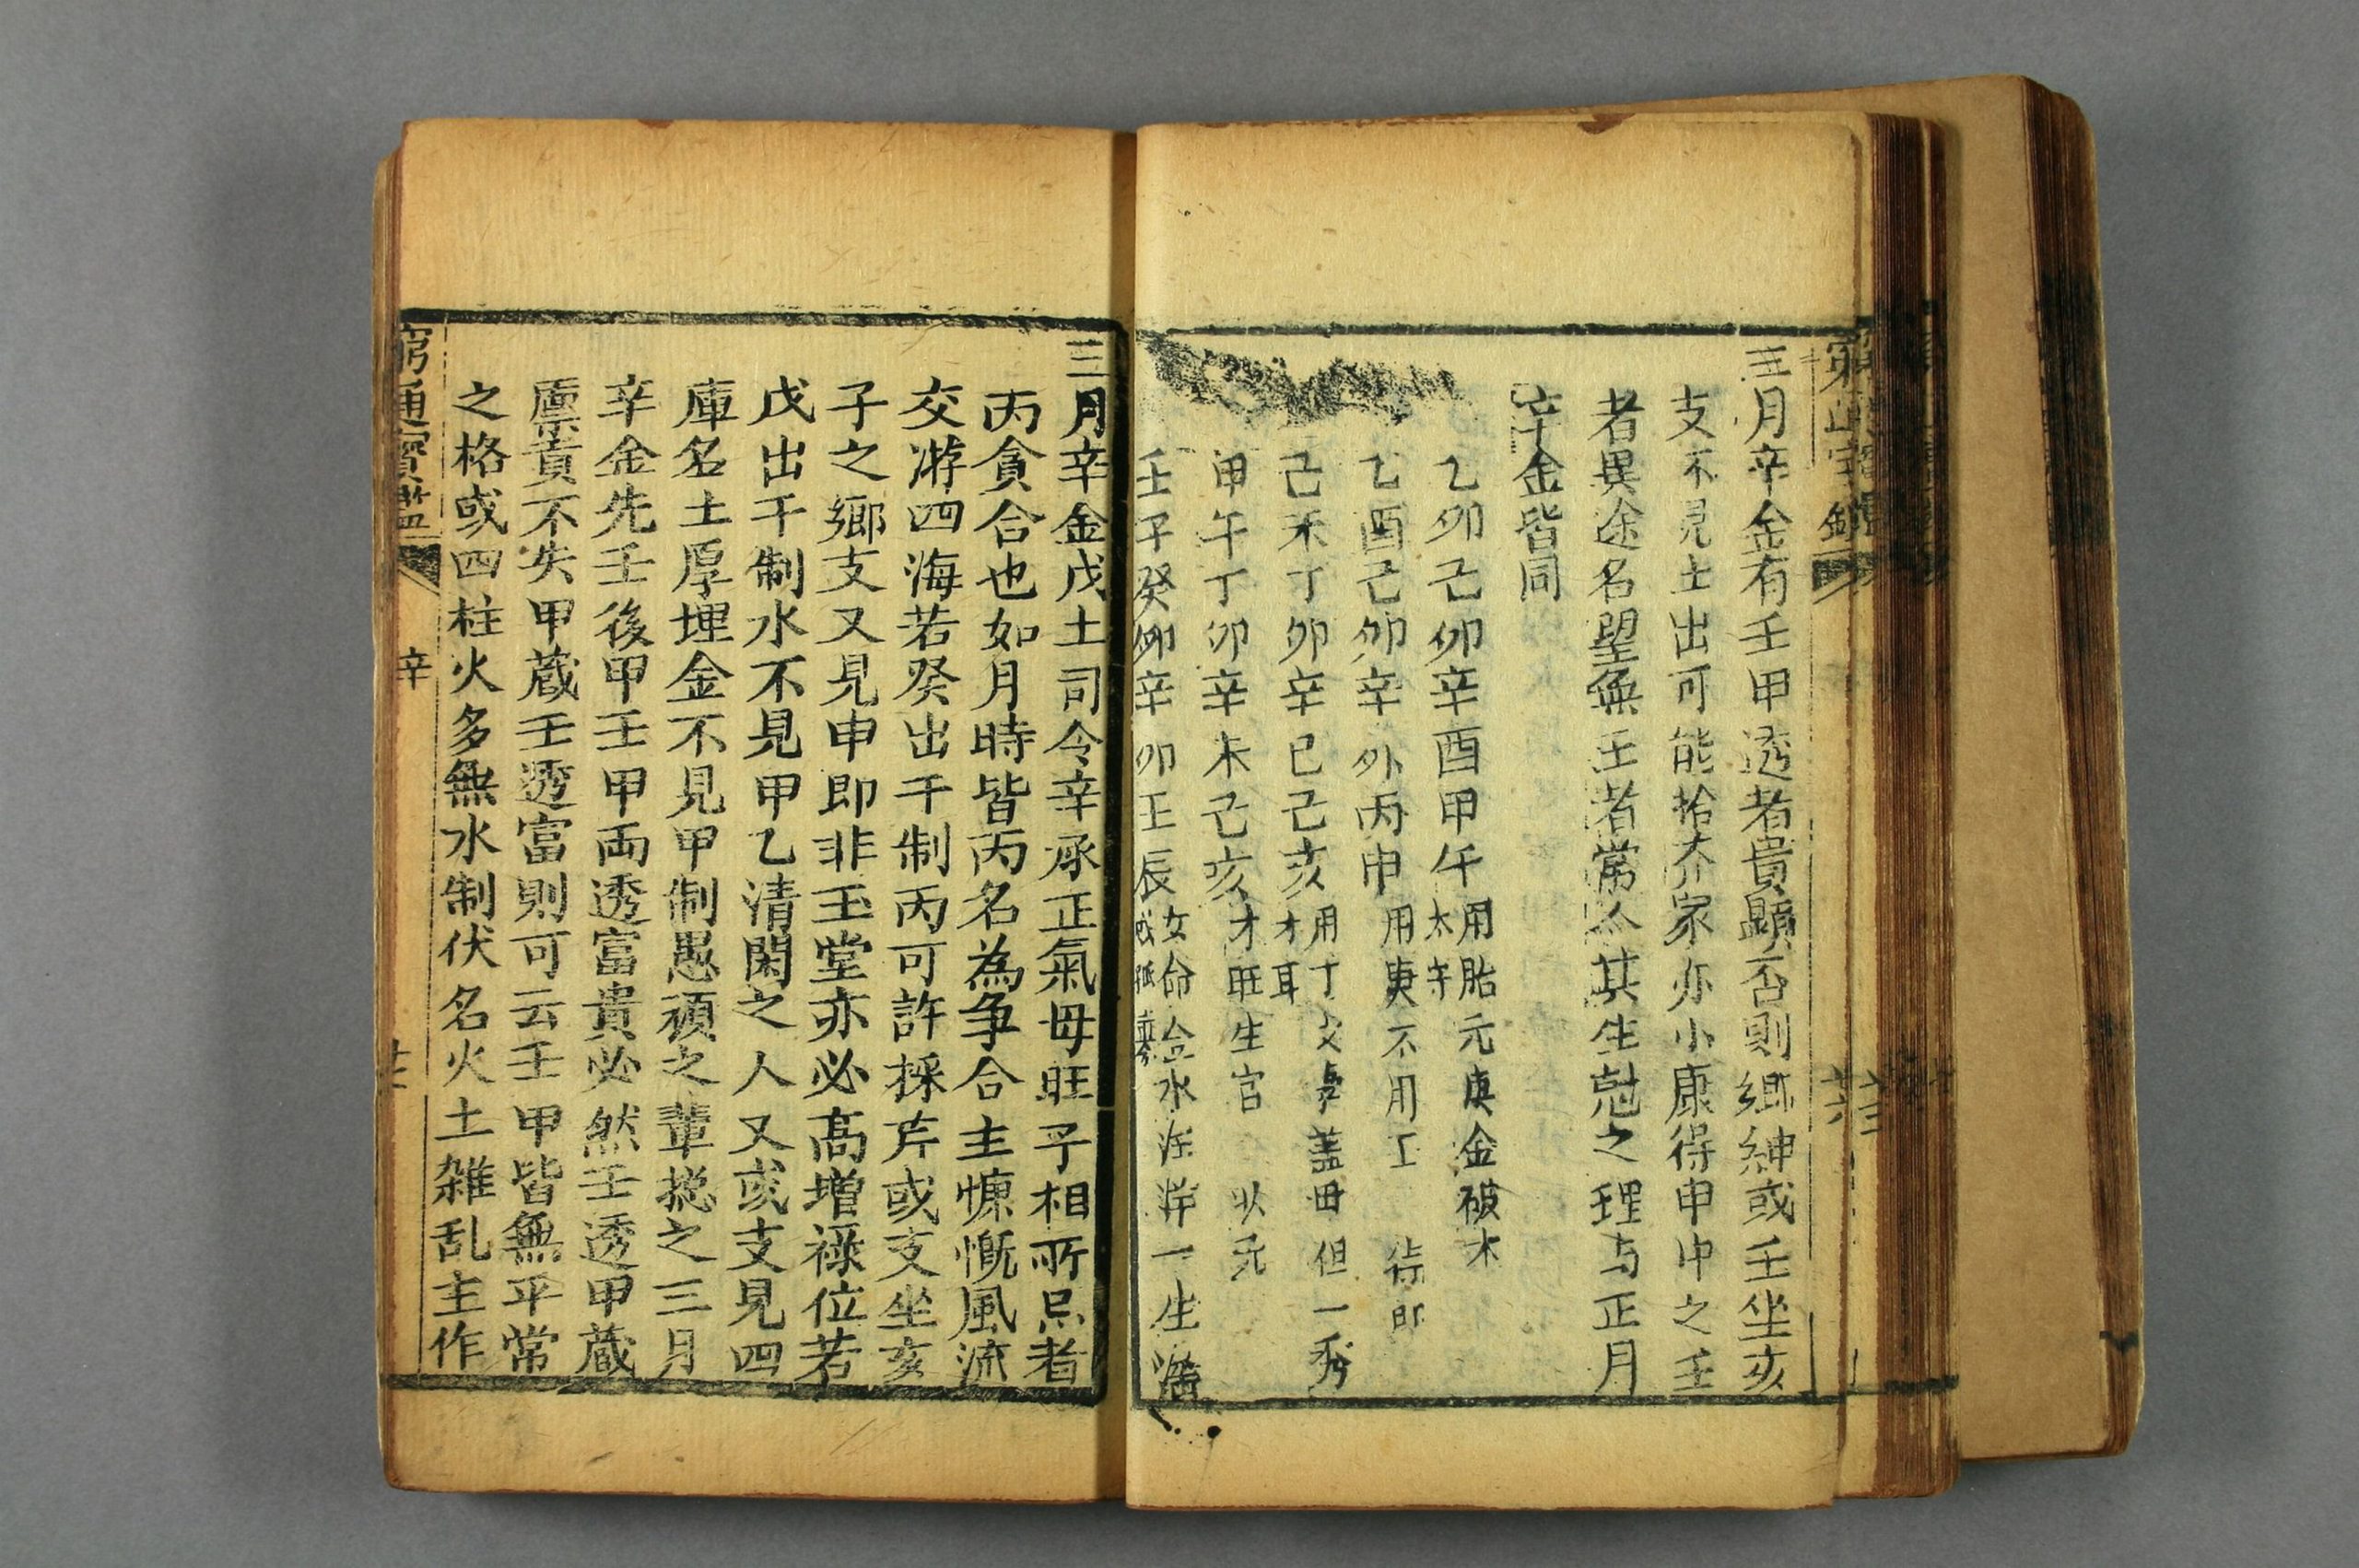 月辛金有壬甲透者貴顯否則鄉紳或壬坐亥
支不見土出可能拾芥家亦小康得申中之壬
者異途名望無壬者常人其生尅之理与正月
辛金皆同
乙卯己卯辛酉甲午用胎元庚金破木
太守
乙酉己卯辛卯丙申用庚不用
己未丁卯辛巳己亥用丁
才耳
甲午丁卯辛未己亥才旺生官
壬子癸卯辛卯壬辰女命
三月辛金戊土司令辛承正氣母旺子相所忌者
丙貪合也如月時皆丙名為争合主慷慨風流
交游四海若癸出干制丙可許採芹或支坐亥
子之鄉支又見申即非玉堂亦必髙增祿位若
戊出干制水不見甲乙清閑之人又或支見四
庫名土厚埋金不見甲制愚頑之輩揔之三月
辛金先壬後甲壬甲両透富貴必然壬透甲蔵
廪貢不失甲蔵壬透富則可云壬甲皆無平常
之格或四柱火多無水制伏名火土雑乱主作
窮通寳鑑
辛